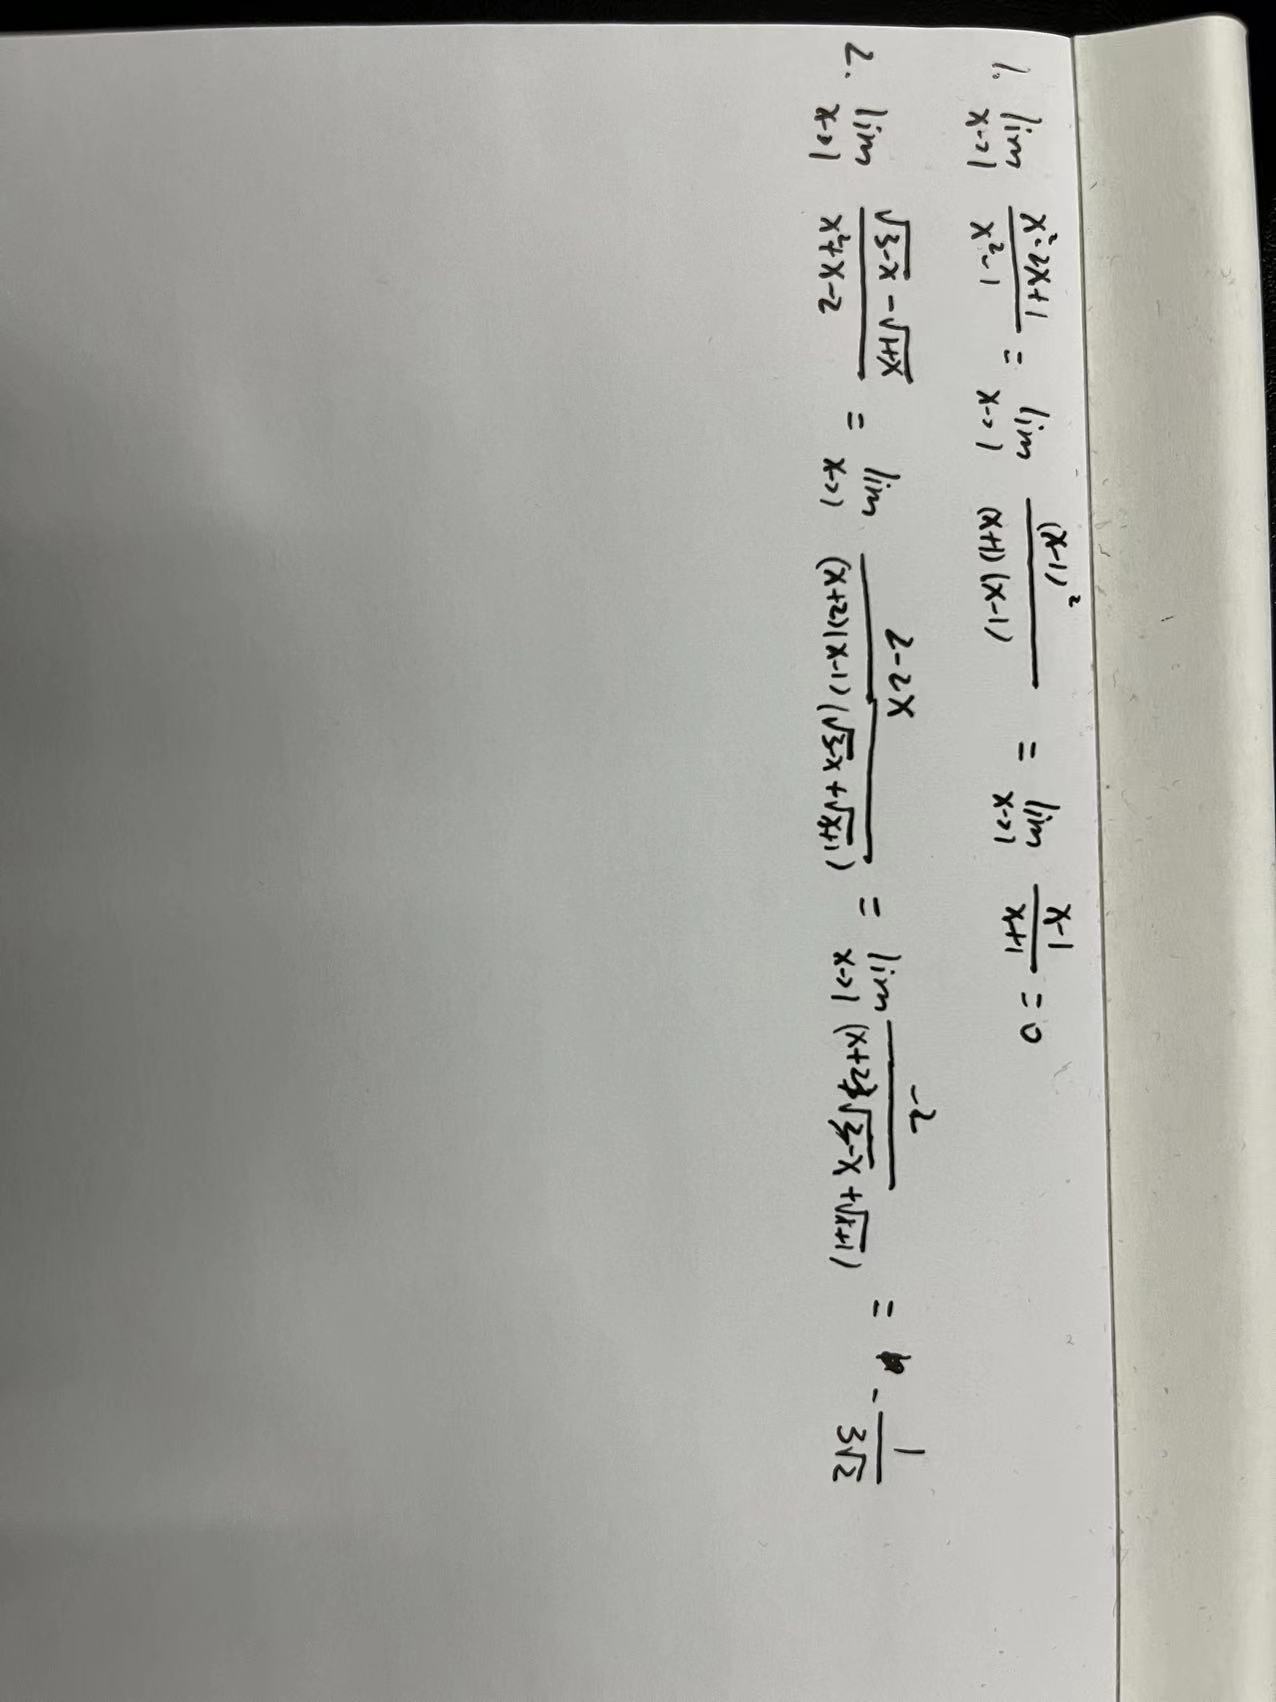 1. lim x->1 (x²-2x+1)/(x²-1) = lim x->1 (x-1)²/((x+1)(x-1)) = lim x->1 (x-1)/(x+1) = 0
2. lim x->1 (√(3-x) - √(1+x))/(x²+x-2) = lim x->1 (2-2x)/((x+2)(x-1)(√(3-x) + √(x+1))) = lim x->1 -2/((x+2)(√(3-x) + √(x+1))) = -1/(3√2)